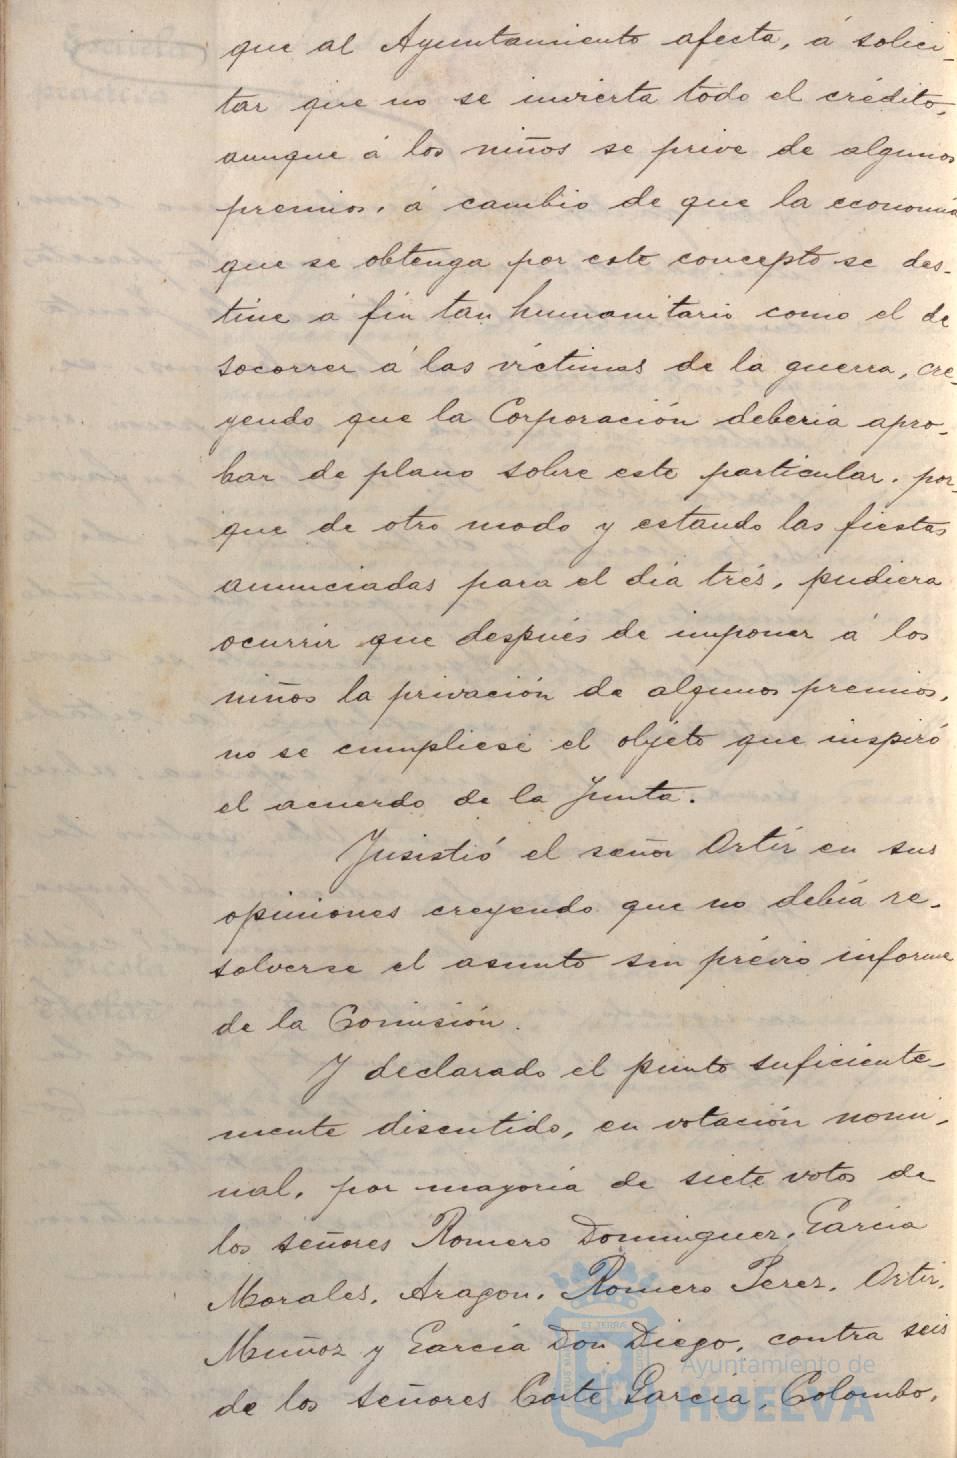 que al Ayuntamiento afecta, á solici-
tar que no se invierta todo el crédito,
aunque á los niños se prive de algunos
premios, á cambio de que la economía
que se obtenga por este concepto se des-
tine á fin tan humanitario como el de
socorrer á las víctimas de la guerra, cre-
yendo que la Corporación debería apro-
bar de plano sobre este particular, por-
que de otro modo y estando las fiestas
anunciadas para el día trés, pudiera
ocurrir que después de imponer á los
niños la privación de algunos premios,
no se cumpliese el objéto que inspiró
el acuerdo de la Junta.
Insistió el señor Ortiz en sus
opiniones creyendo que no debía re-
solverse el asunto sin prévio informe
de la Comisión.
Y declarado el punto suficiente-
mente discutido, en votación nomi-
nal, por mayoría de siete votos de
los señores Romero Dominguez, García
Morales, Aragon, Romero Perez, Ortiz,
Muñoz y García Don Diego, contra seis
de los señores Corte García, Colombo,
Ayuntamiento de
HUELVA